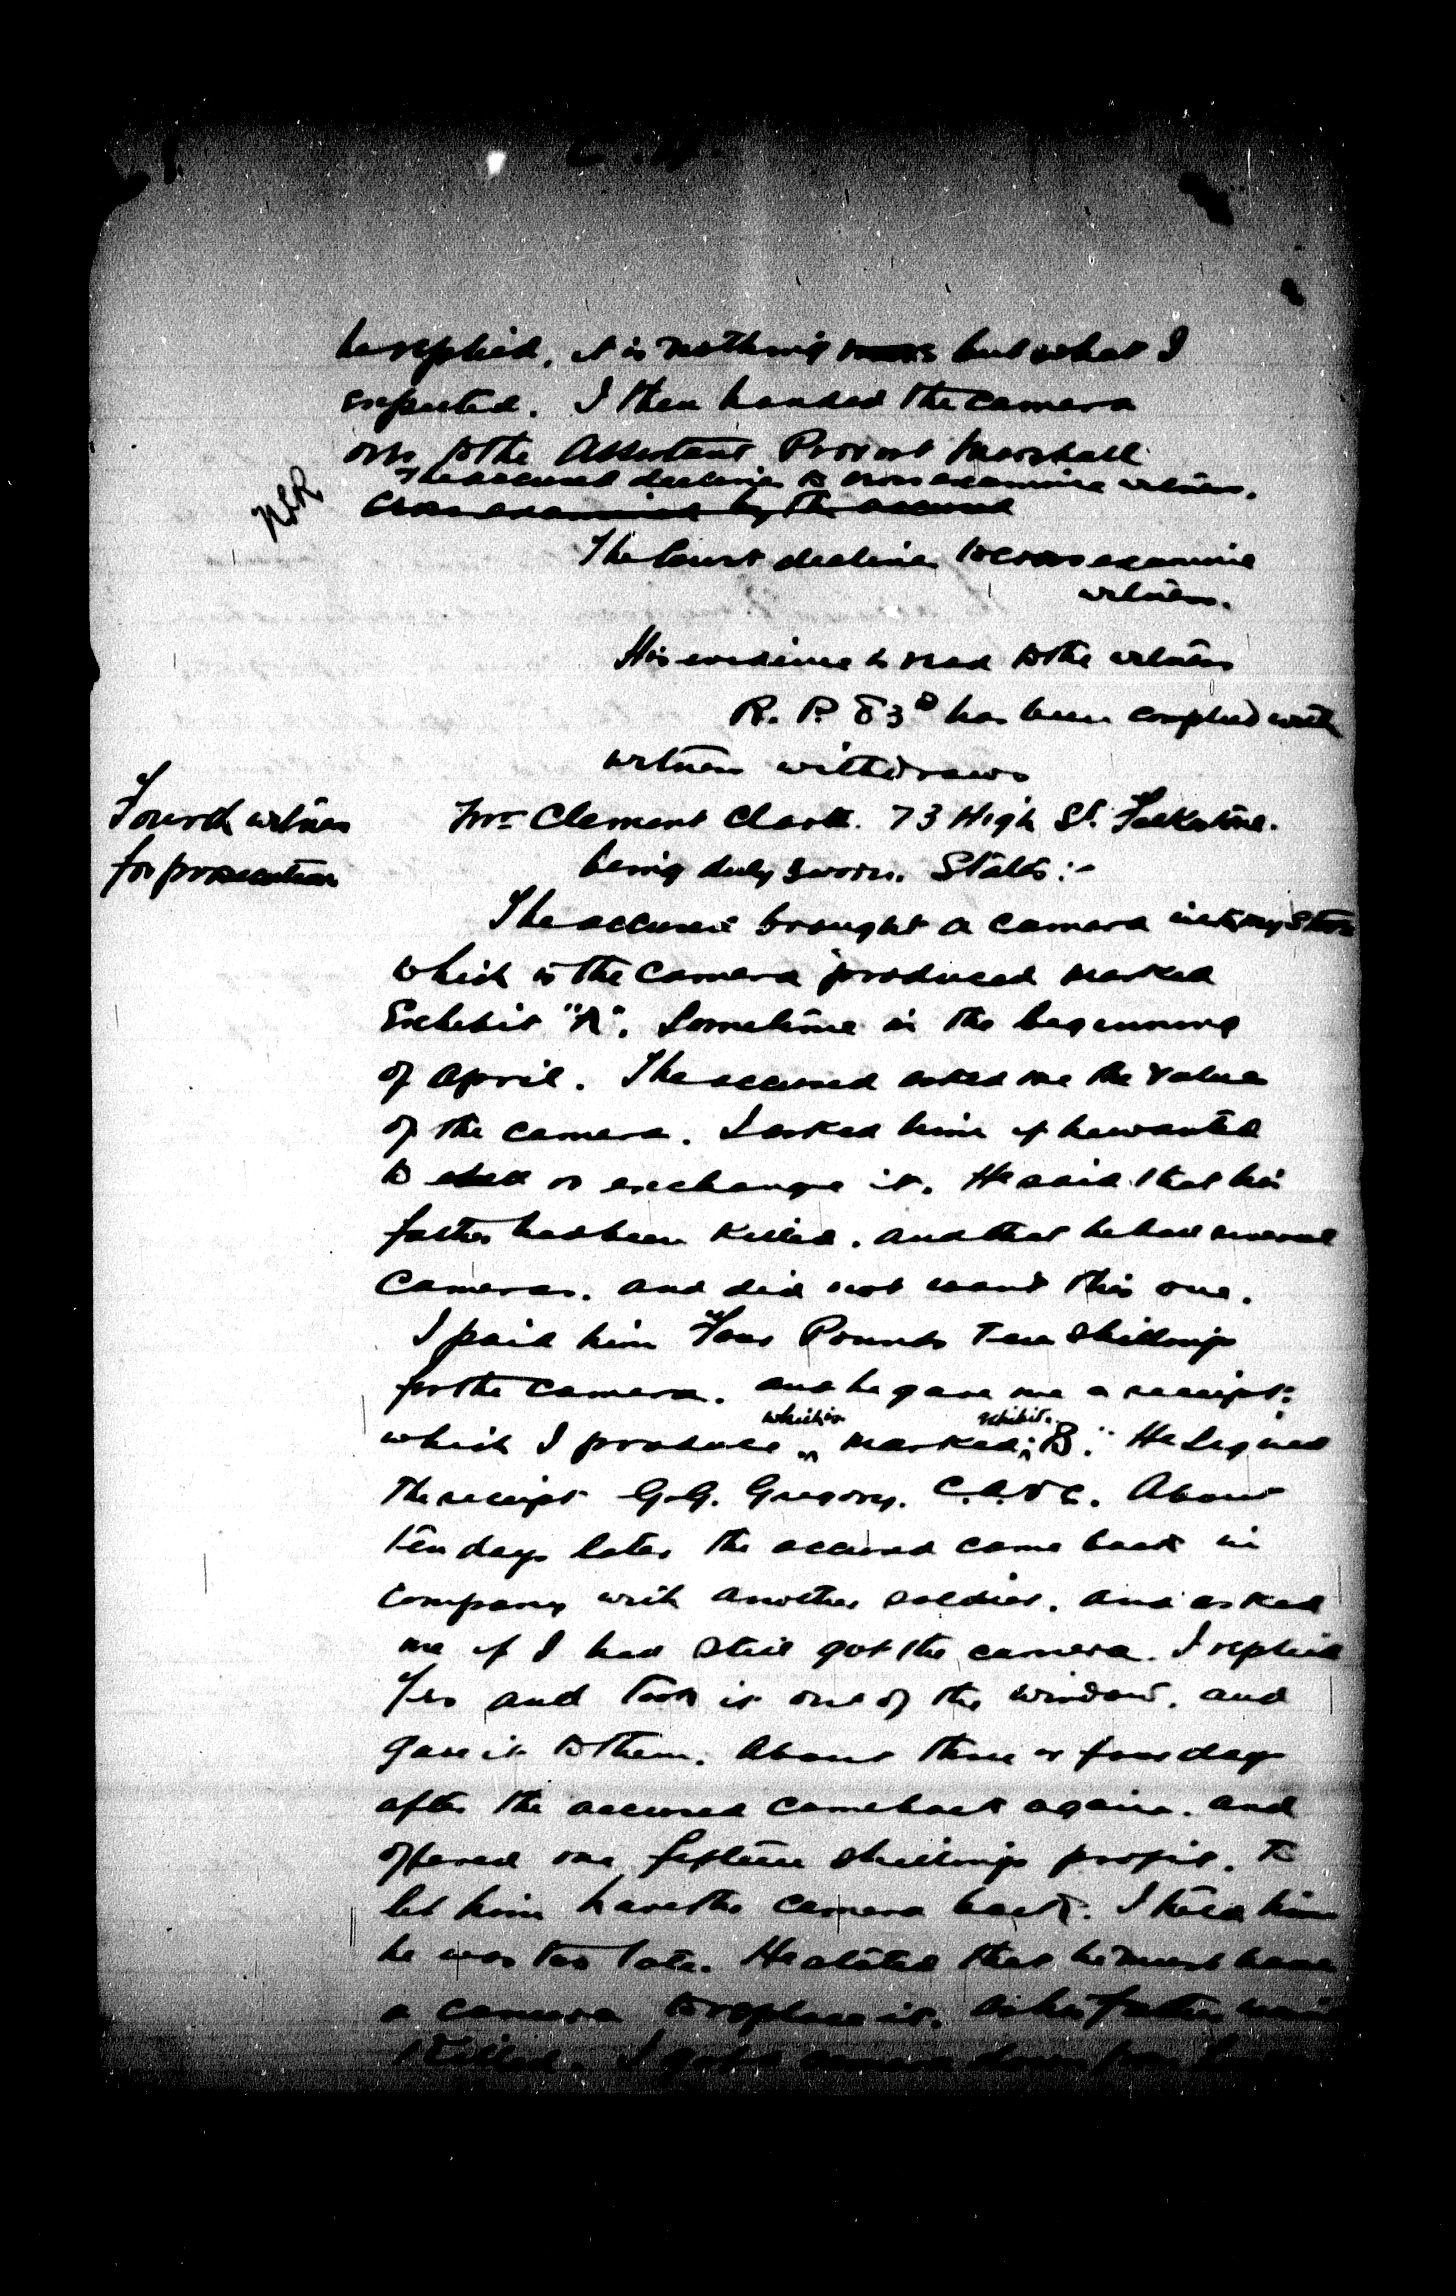 he replied, it is nothing but what I
expected. I then handed the camera
over to the Assistant Provost Marshall
The accused declines to cross examine witness.
Cross examined by the accused
The Court declines to cross examine
witness.
His evidence is read to the witness
R. P. 83 B has been complied with
witness withdraws
Fourth witness
for prosecution
Mr. Clement Clark. 73 High St. Folkestone.
being duly sworn. States:-
The accused brought a camera into my store
which is the camera produced marked
Exhibit "A". Sometime in the beginning
of April. The accused asked me the value
of the camera. I asked him if he wanted
to sell or exchange it. He said that his
father had been killed. and that he had several
cameras. and did not want this one.
I paid him Four Pounds Ten shillings
for the camera. and he gave me a receipt
which I produce which is marked exhibit "B". He signed
the receipt G.G. Gregory. C.A.D.C. About
ten days later the accused came back in
company with another soldier. and asked
me if I had still got the camera. I replied
Yes and took it out of the window. and
gave it to them. About three or four days
after the accused came back again. and
offered me fifteen shillings profit. to
let him have the camera back. I told him
he was too late. He stated that he must have
a camera to replace it. as his father was
killed. I got a camera down from